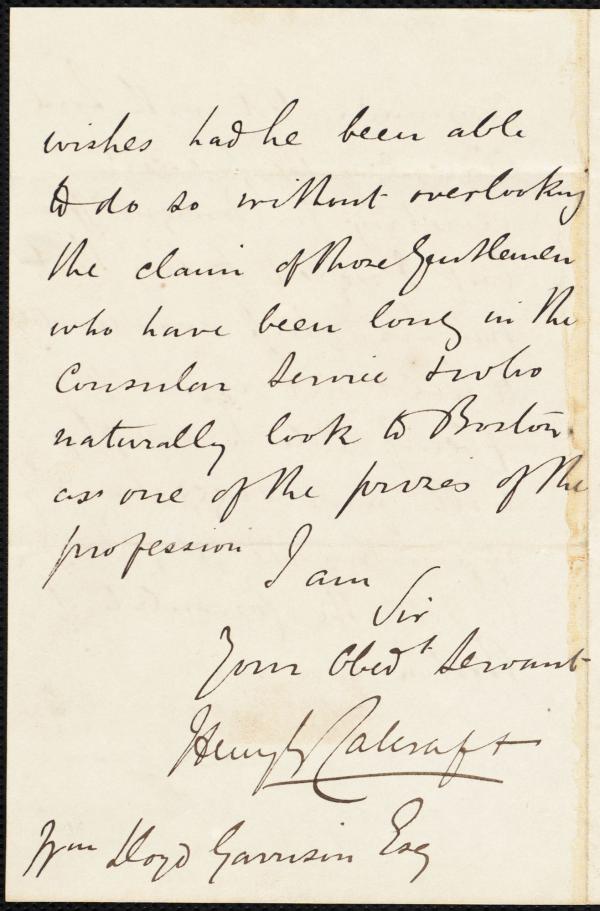 wishes had he been able
to do so without overlooking
the claim of those Gentlemen
who have been long in the
Consular Service & who
naturally look to Boston
as one of the prizes of the
profession
I am
Sir
Your Obedt Servant
Henry Calcraft
Wm Lloyd Garrison Esq